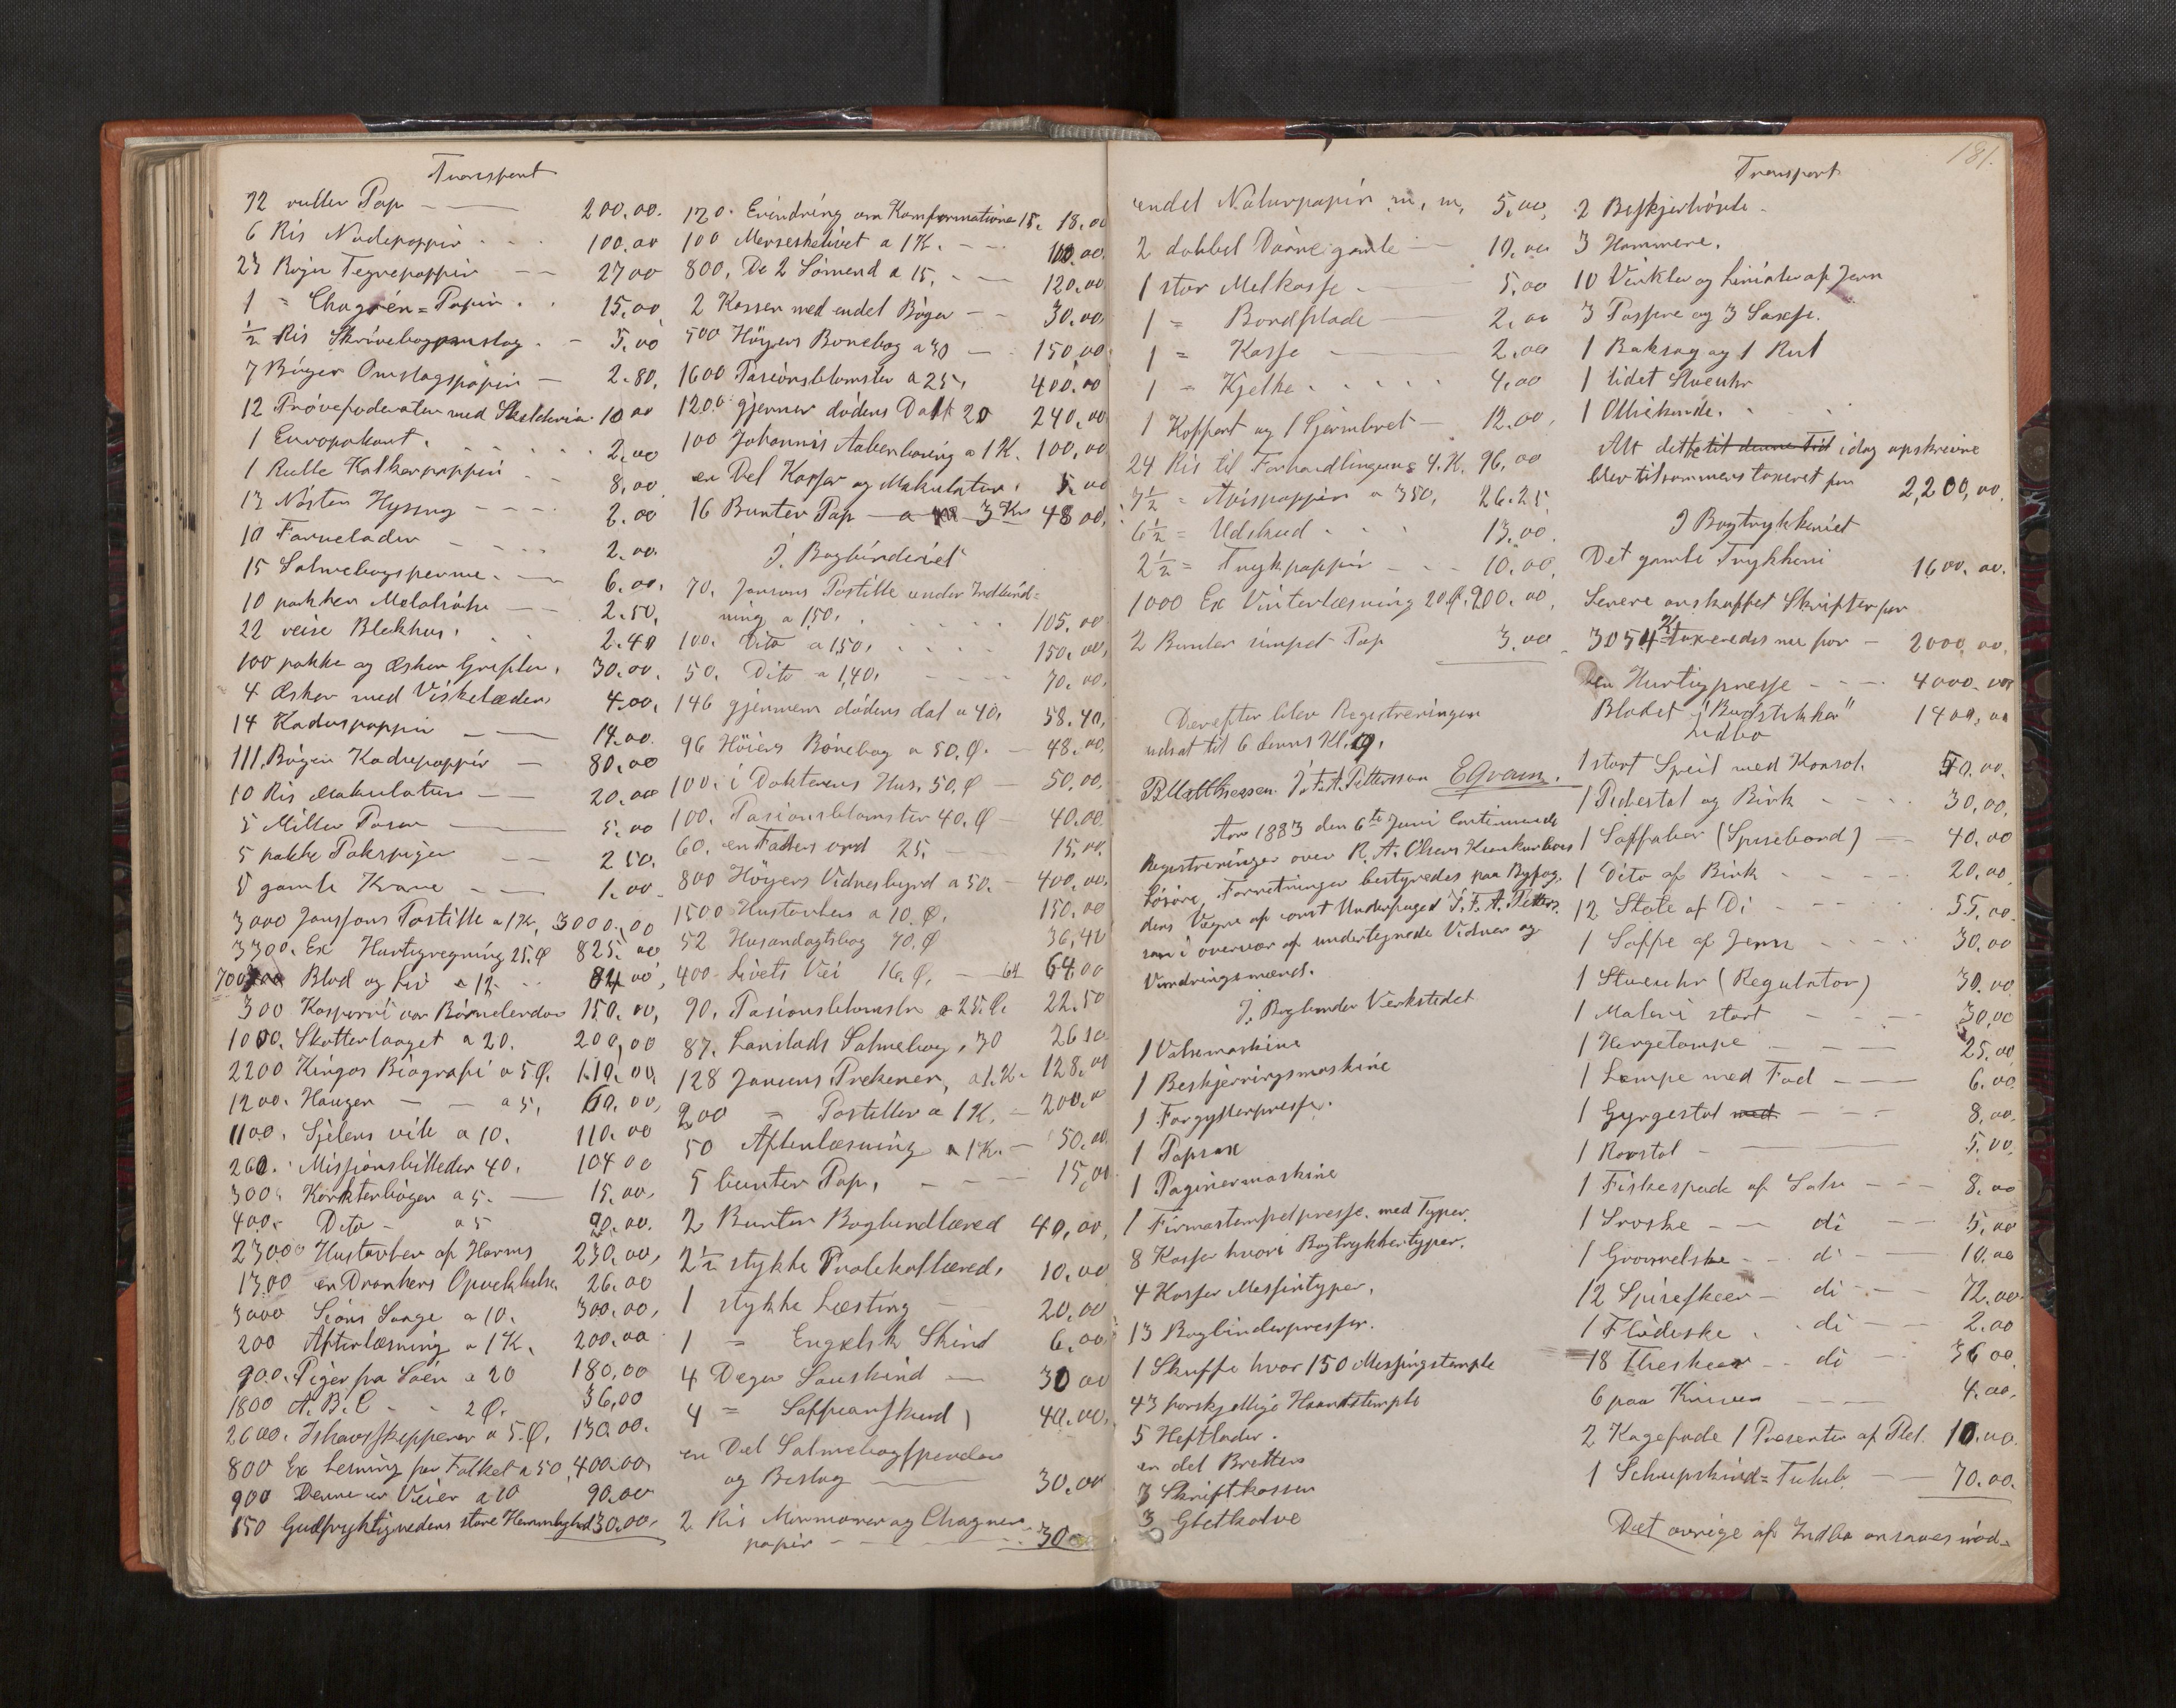 Transport
72 ruller Pap 200.00.
6 Ris Nodepappir 100.00
27 Bøger Tegnepappir 27 00
1 = Chagrén=Papir. 15.00
½ Ris Skrivebogomslag. 5.00
7 Bøger Omslagspapir 2.80.
12 Prøvepoderater med 10 00
1 Europakart. 2.00
1 Rulle Kalkerpappir 8.00
13 Nøster Hyssing 2.00
10 Farvelader 2.00.
15 Salmebogsperme. 6.00.
10 pakker 2.50.
22 reise Blekhus. 2.40
100 pakke og Æsker Grifler. 30.00.
4 Æsker med Viskelæder 4.00.
14 Karduspappir 14.00.
111. Bøger Kardupappir 80.00
10 Ris Makulatur 20.00
5 Miller Poser 5.00
5 pakke Pakspiger 2 50.
5 gamle Krane 1.00
3000 Janssons Postille a 1 K. 3000.00
3300. Ex Hurtigregning 25.Ø 825.00
700 Blod og Liv a 12 84 00
300 Kasperri var Børnelærdom 150.00,
1000. Skatterlaaget a 20. 200,00
2200 Kingos Biografi a 5 Ø. 110.00.
1200. Haugen a 5. 60.00,
1100. Sjelens vile a 10. 110.00
260. Missjonsbilleder 40. 104 00
300. Karakterbøger a 5. 15.00,
400. Dito a 5 20.00.
2300 Hustavler af Harms 230.00,
1300 en Drankers Opvekkelse 26.00
3000 Sions Sange a 10. 300.00,
200 Aftenlæsning a 1 K. 200.00
900. Piger fra Søen a 20 180,00
1800 A.B.C 2 Ø. 36,00
2600. Ishavsskipperen a 5.Ø. 130.00.
800 Ex Lesning for Folket a 50 400.00,
900 Denne er Veien a 10 90.00
150 Gudfrygtighedens store Hemmelighed 30.00,
120. Erindring om Konfirmationen 15. 18.00
100 Menneskelivet a 1 K. 100.00.
800. De 2 Sømend a 15. 120.00
2 Kasser med endel Bøger 30.00,
500 Höyers Bønebog a 30 150,00
1600 Pasionsblomster a 25, 400.00
1200 gjennem dødens Dal 20 240,00
100 Johannis Aabenbaring a 1 K. 100,00
en Del Kasser og Makulatur. 5.00
16 Bunter Pap a 3 Kr 48 00,
I Bogbinderiet
70. Jansons Postille under Indbind=
ning a 1,50. 105.00
100. Dito a 1,50. 150.00,
50. Dito a 1,40. 70.00.
146 gjennem dødens dal a 40. 58.40,
96 Höiers Bönebog a 50.Ø. 48.00.
100. i Doktorens Hus. 50.Ø 50.00,
100. Pasionsblomster 40.Ø 40.00.
60. en Faders ord 25. 15.00.
800 Höyers Vidnesbyrd a 50. 400.00,
1500 Hustavlen a 10.Ø. 150.00
52 Husandagtsbog 70.Ø 36,40
400. Livets Vei 16.Ø. 64 64.00
90. Pasionsblomster a 25.Ø. 22.50
87. Lanstads Salmebog, 30 26 10
128 Jansens Prekener, a 1.K. 128.00
200 = Postiller a 1 K. 200.00
50 Aftenlæsning a 1 K. 50.00.
5 bunter Pap. 15,00
2 Bunter Bogbindlæred 40,00,
2½ stykke 10.00
1 stykke Læsting 20.00
1 = Engelsk Skind 6.00
4 Deger Saueskind 30 00
4 = Saffianskind 40.00,
en Del Salmebogspender
og Beslag 30.00
2 Ris Marmorer og Chagren
papir 30
181.
Transport
endel Naturpapir m, m, 5,00,
2 dobbel Dørre gamle 10.00
1 stor Melkasse 5,00
1 = Bordplade 2,00
1 = Kasse 2.00
1 = Kjelke 4,00
1 Koppert og 1 Sjermbret 12.00,
24 Ris til Forhandlingerne 4.K. 96,00
7½ = Avispappir a 350, 26.25.
6½ = Udskud 13.00.
2½ = Trykpappir 10.00,
1000 Ex Vinterlæsning 20Ø. 200.00,
2 Bunter simpel Pap 3,00
Derefter blev Registreringen
udsat til 6 dennes Kl. 9.
J.F.A. Pettersson E Qvam.
Aar 1883 den 6te Juni Continuerede
Registreringen over R. A. Olsens Konkursboes
Løsøre Forretningen bestyredes paa Byfog,
dens Vegne af const Underfoged J.F.A. Petters,
son i overvær af undertegnede Vidner og
Vurdringsmænd.
I. Bogbinder Verkstedet
1 Valsemaskine
1 Beskjerringsmaskine
1 Forgylterpresse.
1 Papsax
1 Paginermaskine
1 Firmastempelpresse. med Typer.
8 Kasser hvori Bogtrykkertyper.
4 Kasser Messintyper,
13 Bogbinderpresser.
1 Skuffe hvor 150 Messingstemple
43 forskjellige Haandstemple
5 Heftlader.
en del Bretter
3 Skriftkasser
3 Gletkolve
2 Beskjerhövle
3 Hammere.
10 Vinkler og Liniater af Jern
3 Passere og 3 Saxse.
1 Baksag og 1 Rut
1 lidet Stueuhr
1 Oliekande.
Alt dette til denne Tid idag opskrevne
blev tilsammens taxeret for 2,200,00.
I Bogtrykkeriet
Det gamle Trykkeri 1600.00.
Senere anskaffet Skrifter for
3054 K taxeredes nu for 2000,00,
Den Hurtigpresse 4000.00
Bladet "Budstikken" 1400,00
Indbo
1 stort Speil med Konsol. 50.00.
1 Pidestal og Birk 30,00,
1 Saffabor (Spisebord) 40.00
1 Dito af Birk 20.00
12 Stole af Di 55.00.
1 Saffe af Jern 30.00
1 Stueuhr (Regulator) 30.00
1 Maleri stort 30,00
1 Hengelampe 25.00
1 Lampe med Fad 6.00
1 Gyngestol med 8,00,
1 Rorstol 5.00.
1 Fiskespade af Sølv 8.00
1 Sroske di 5,00
1 di 10,00
12 Spiseskeer di 72.00
1 Flödeske di 2.00
18 Theskeer di 36 00.
6 paa Kniver 4.00.
2 Kagefade 1 Presenter af Plet. 10.00.
1 70.00.
Det øvrige af Indbo ansaaes nød-